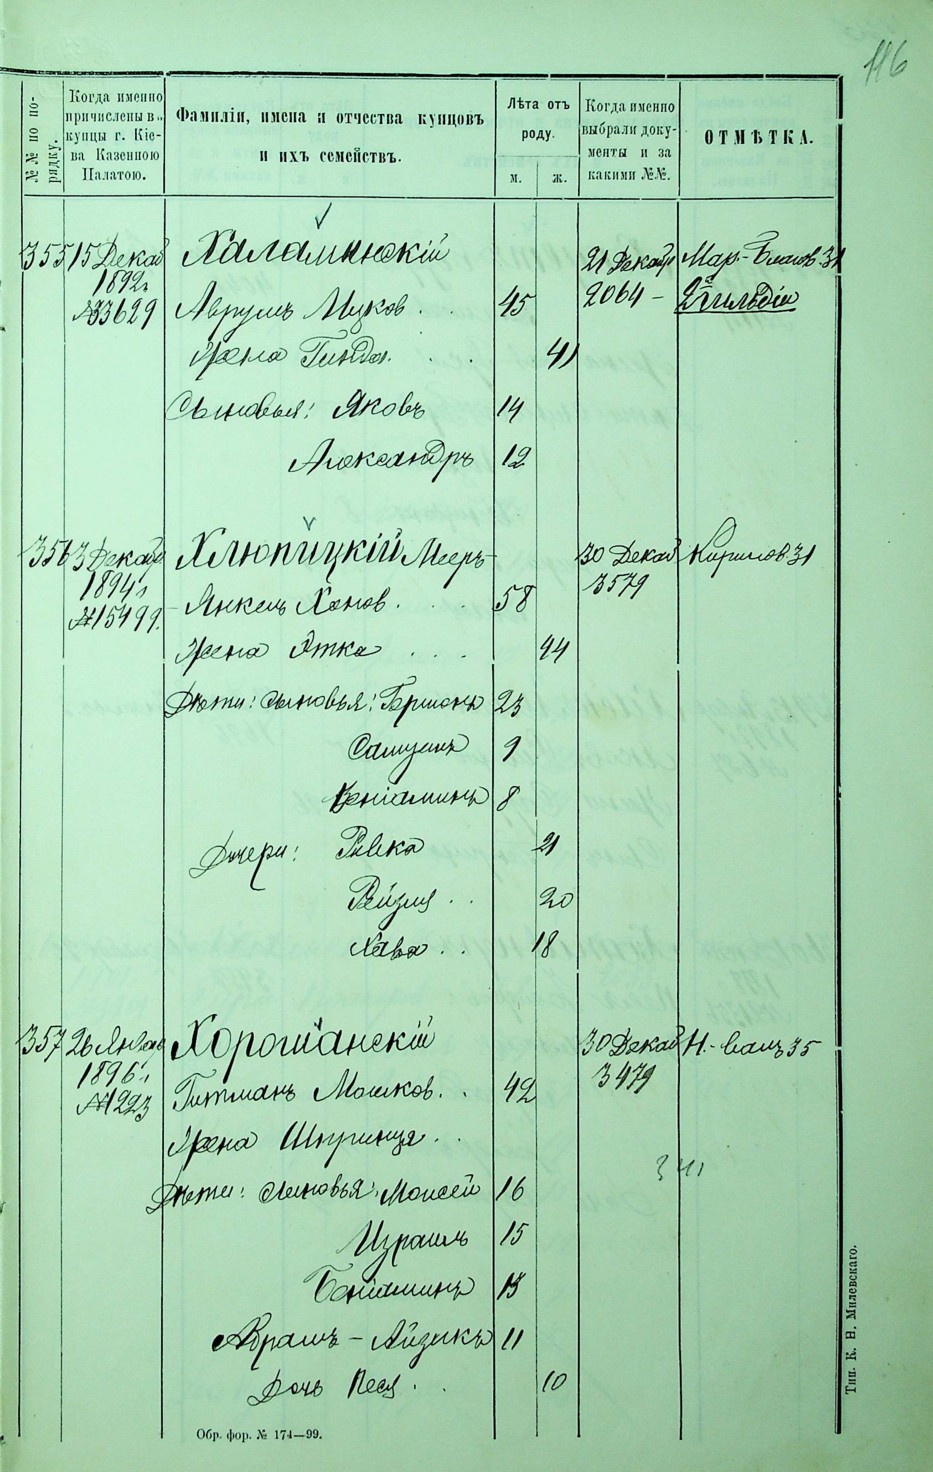 116
№№ по порядку.
Когда именно причислены в купцы г. Кіева Казенною Палатою.
Фамиліи, имена и отчества купцовъ и ихъ семействъ.
Лѣта отъ роду.
м.
ж.
Когда именно выбрали документы и за какими №№.
ОТМѢТКА.
355 15 Декаб Халаминскій 21 Декабр Мар.-Благов. 31
1892 г. 2064 – 2й гильдіи
№33629 Аврумъ Ицков. 45
Жена Гинда. 41
Сыновья: Яковъ 14
Александръ 12
356 3 Декаб Хлюпицкій Мееръ- 30 Декаб Кирилов 31
1894 г. 3579
№15499 Янкель Ханов. 58
Жена Этка 44
Дѣти: сыновья: Бершонъ 23
Самуилъ 9
Веніаминъ 8
Дочери: Ривка 21
Рейзля 20
Хава 18
357 26 Январ Хорошанскій 30 Декаб Н.-Валъ 35
1896 г. 3479
№1223 Гитманъ Мошков. 42
Жена Шпринца
341
Дѣти: сыновья: Моисей 16
Израиль 15
Беніаминъ 13
Абрамъ-Айзикъ 11
Дочь Песя 10
Обр. фор. № 174—99.
Тип. К. Н. Милевскаго.